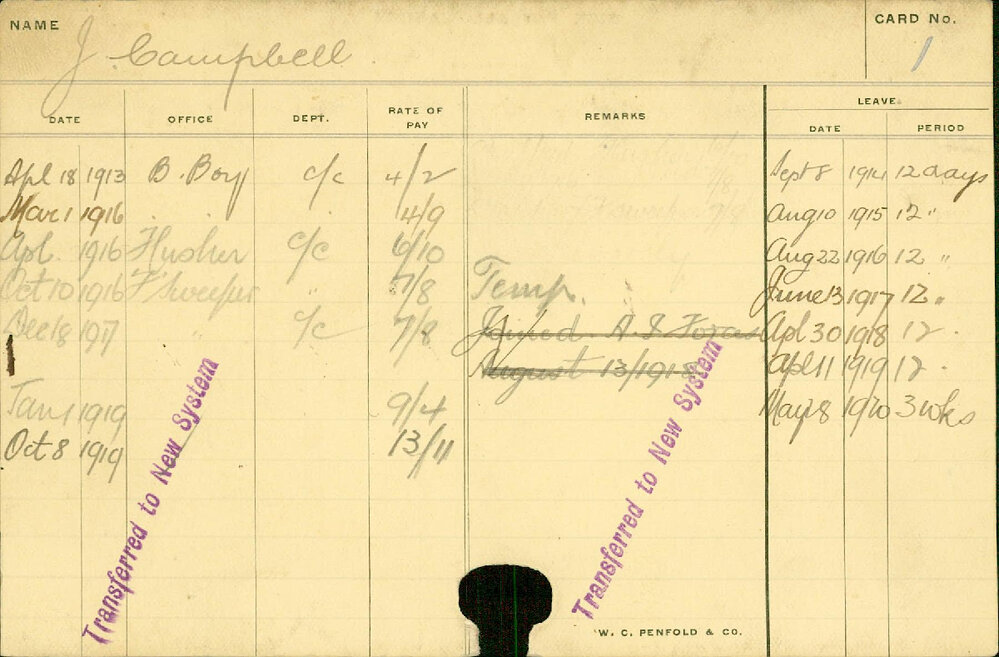 NAME J. Campbell CARD No. 1
LEAVE.
DATE OFFICE DEPT. RATE OF PAY REMARKS DATE PERIOD
Apl 18 1913 B. Boy c/c 4/2 Sept 8 1914 12 days
Mar 1 1916 . . . 4/9 Aug 10 1915 12 "
Apl. 1916 Flusher c/c 6/10 Aug 22 1916 12 "
Oct 10 1916 F Sweeper " 7/8 Temp. June 13 1917 12 "
Dec 18 1917 " c/c 7/8 Joined A.I Forces Apl 30 1918 12 "
August 13/1918 Apl 11 1919 12 "
Jan 1 1919 9/4 May 28 1920 3 wks
Oct 8 1919 13/11
Transferred to New System
Transferred to New System
W. C. PENFOLD & CO.